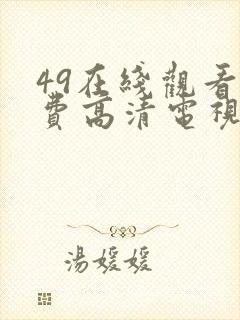 49在綫觀看
費高清電視
湯媛媛